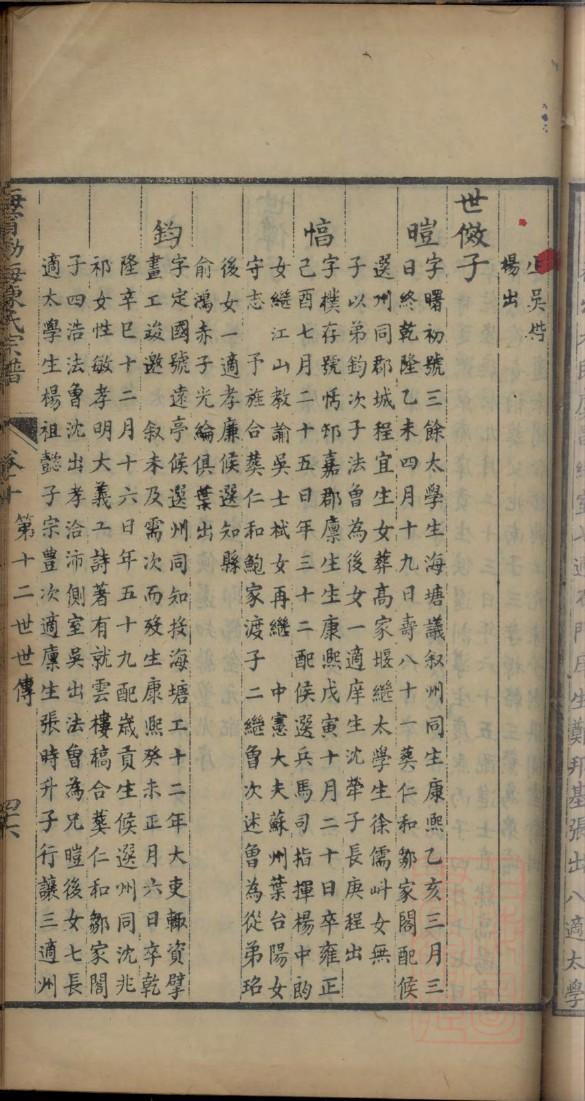 生吳偕
楊出
世儆子
暟字曙初號三餘太學生海塘議敘州同生康熙乙亥三月三
日終乾隆乙未四月十九日壽八十一葬仁和鄒家閣配候
選州同郡城程宜生女葬高家堰繼太學生徐儒女無
子以弟鈞次子法魯為後女一適庠生沈犖子長庚程出
字樸存號恬邨嘉郡廩生生康熙戊寅十月二十日卒雍正
己酉七月二十五日年三十二配侯選兵馬司指揮楊中
女繼江山教諭吳士栻女再繼中憲大夫蘇州葉台陽女
守志予旌合葬仁和鮑家渡子二繼曾次述魯為從弟珞
後女一適孝廉候選知縣
俞鴻赤子光綸俱葉出
鈞字定國號遠亭候選州同知投海塘工十二年大吏輒資擘
畫工竣邀敘未及需次而歿生康熙癸未正月六日卒乾
隆辛巳十二月十六日年五十九配歲貢生候選州同沈兆
祁女性敏孝明大義工詩著有就雲樓稿合葬仁和鄒家閣
子四浩法魯沈出孝洽沛側室吳出法魯為兄暟後女七長
適太學生楊祖懿子宗豐次適廩生張時升子行讓三適州
海寧渤海陳氏宗譜 卷十 第十二世世傳
生鄭拜基張出八適太學